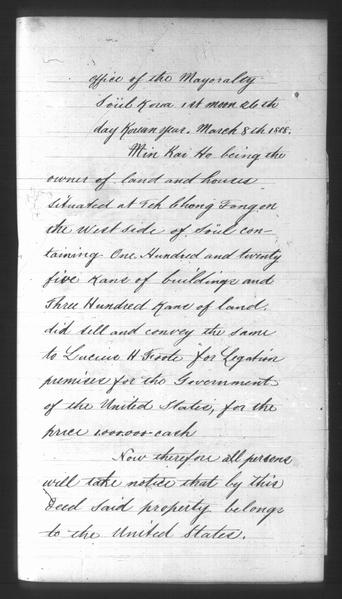 Office of the Mayoralty
Söül Korea 1st moon 26th
day Korean year. March 8th 1888.
Min Kai Ho being the
owner of land and houses
situated at Chong Fong on
the West side of Söül con-
taining One Hundred and twenty
five Kans of buildings and
Three Hundred Kans of land.
did sell and convey the same
to Lucius H Foote for Legation
premises for the Government
of the United States, for the
price 1.000.000 cash
Now therefore all persons
will take notice that by this
Deed Said property belongs
to the United States.